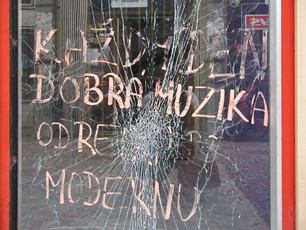 KAŽDÝ DEN
DOBRA MUZIKA
MODERNU